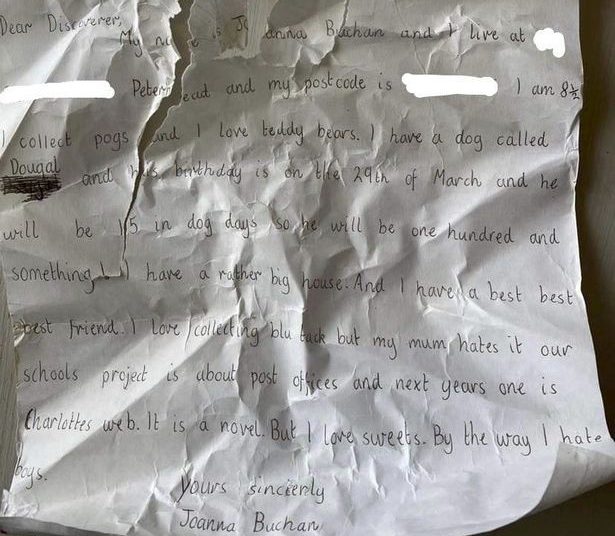 Dear Discoverer,
My na e is J anna Buchan and I live at
Peterhead and my postcode is I am 8½
I collect pogs and I love teddy bears. I have a dog called
Dougal and his birthday is on the 29th of March and he
will be 15 in dog days so he will be one hundred and
something! I have a rather big house. And I have a best best
best friend. I love collecting blu tack but my mum hates it our
schools project is about post offices and next years one is
Charlottes web. It is a novel. But I love sweets. By the way I hate
boys.
yours sincierly
Joanna Buchan